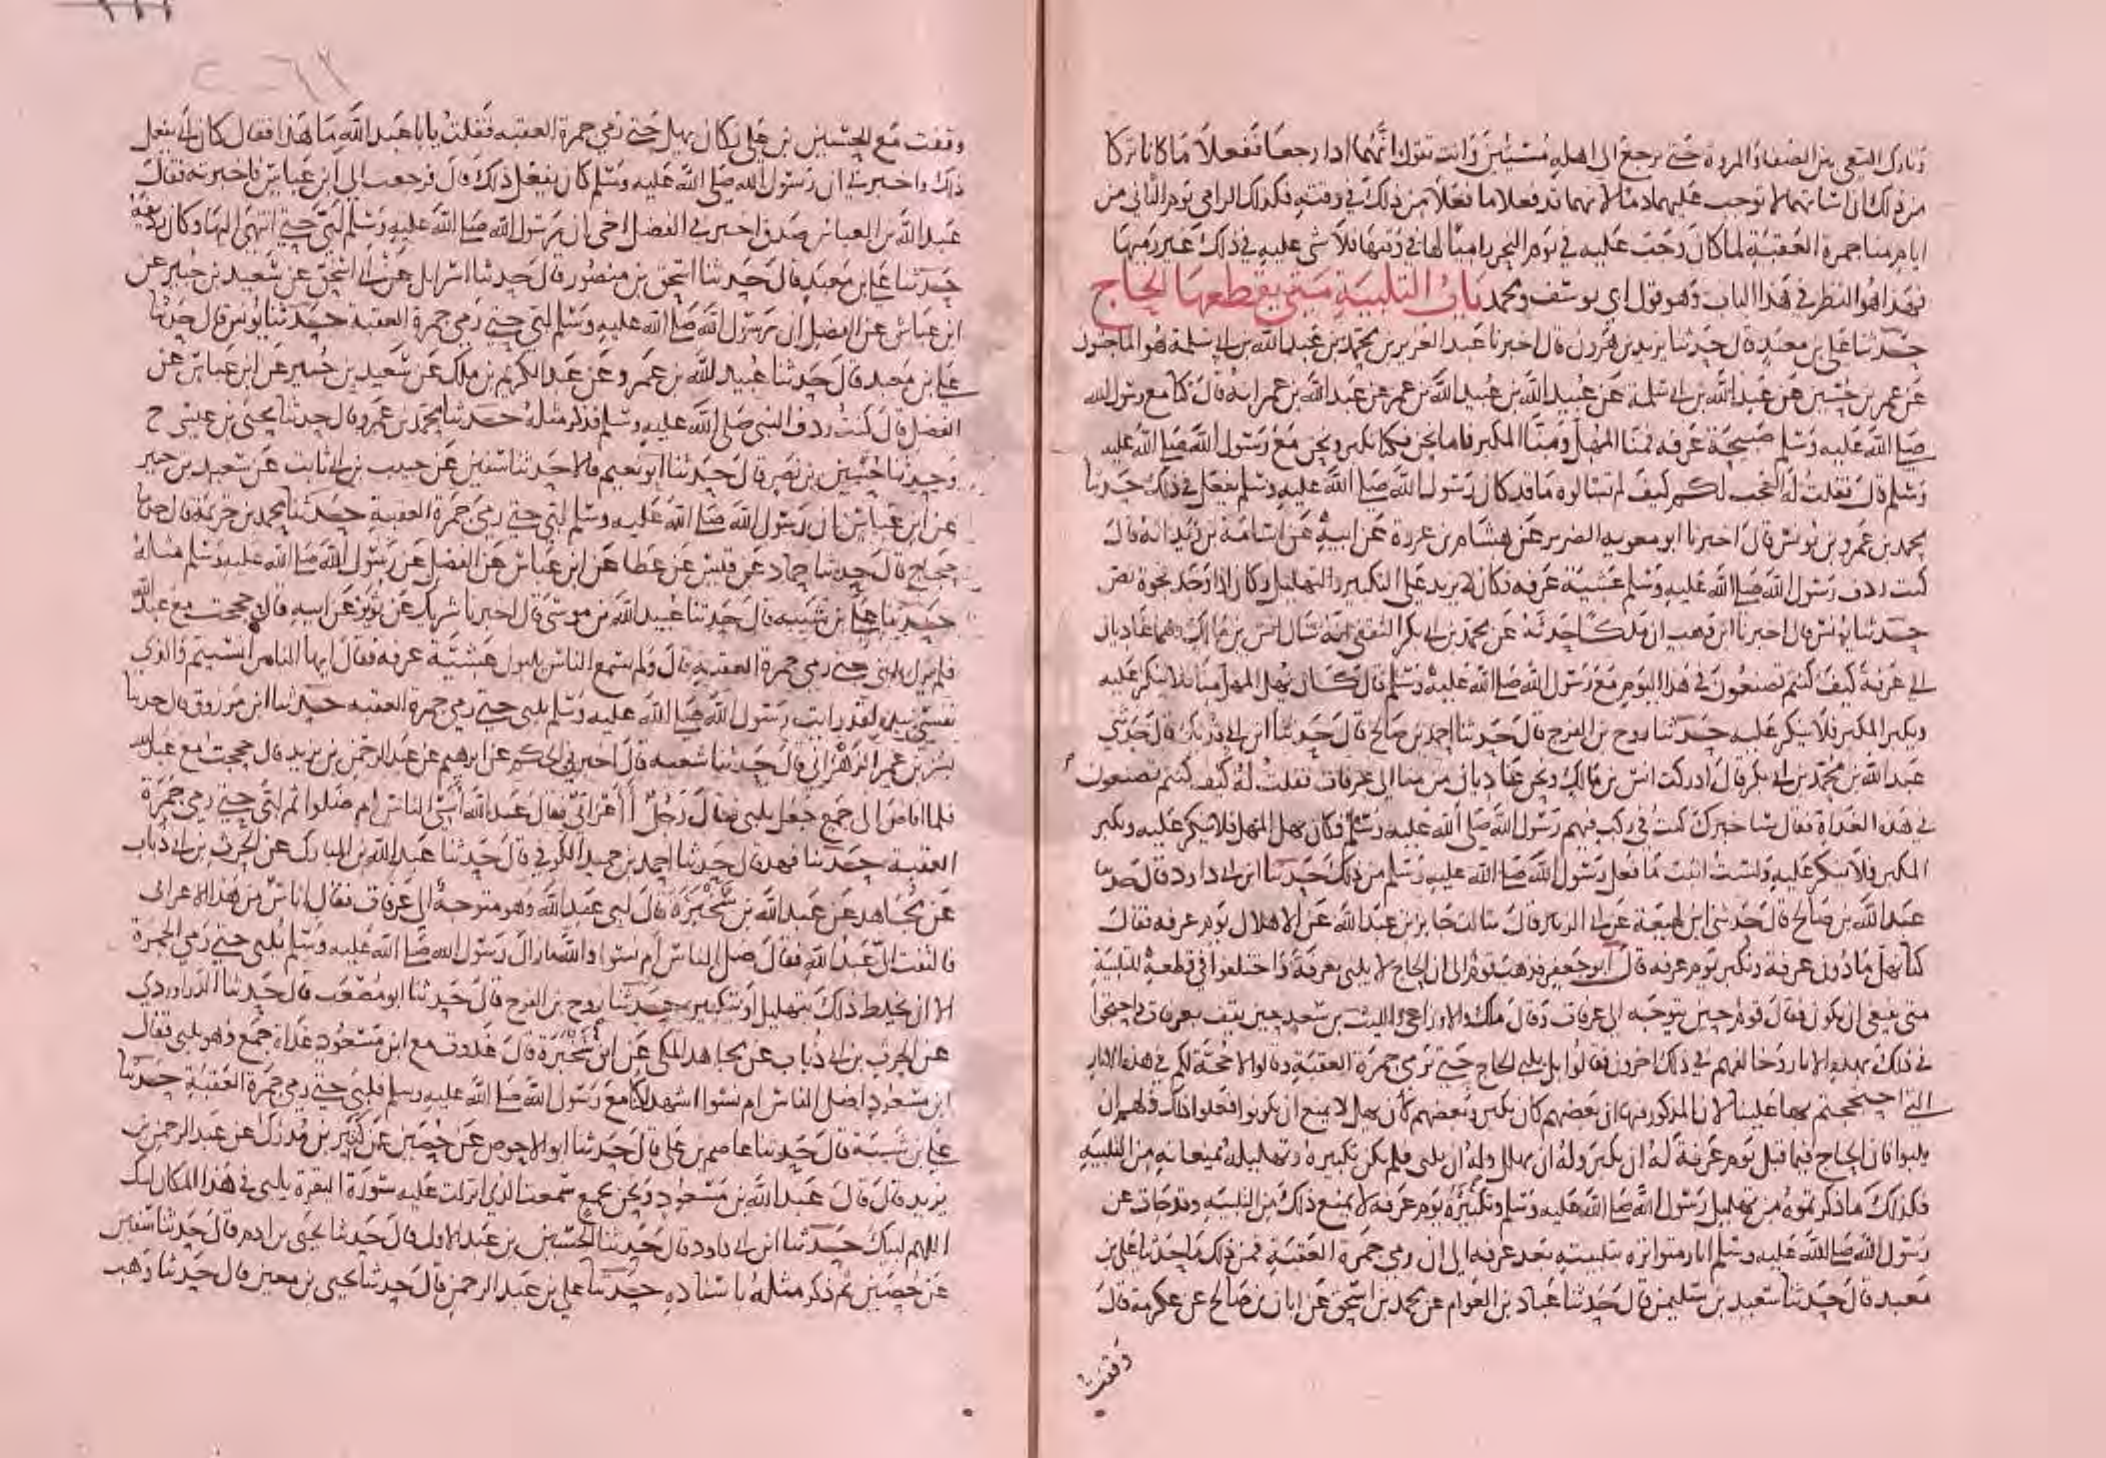 وتارك السعي بين الصفا والمروة حتى يرجع الى اهله مسيئين وانت تقول انهما اذا رجعا ففعلا ما كانا تركا
من ذلك ان اساتهما لا توجب عليهما دما لانهما قد فعلا ما فعلا من ذلك في وقته فكذلك الرامي يوم الثاني من
ايام منا جمرة العقبة لما كان وجب عليه في يوم النحر راميا لها في وقتها فلا شي عليه في ذلك غير رميها
فهذا هو النظر في هذا الباب وهو قول ابي يوسف ومحمد باب التلبية متى يقطعها الحاج
حدثنا علي بن معبد قال حدثنا يزيد بن هرون قال اخبرنا عبد العزيز بن محمد بن عبد الله بن ابي سلمة هو الماجشون
عن عمر بن حسين عن عبد الله بن ابي سلمة عن عبيد الله بن عبيد الله بن عمر عن عبد الله بن عمر انه قال كنا مع رسول الله
صلى الله عليه وسلم صبيحة عرفه فمنا المهل ومنا المكبر فاما نحن فكنا نكبر ونحن مع رسول الله صلى الله عليه
وسلم قال فقلت له العجب لكم كيف لم تسالوه ما قد كان رسول الله صلى الله عليه وسلم يفعل في ذلك حدثنا
محمد بن عمرو بن يونس قال اخبرنا ابو معوية الضرير عن هشام بن عروة عن ابيه عن اسامة بن زيد انه قال
كنت ردف رسول الله صلى الله عليه وسلم عشية عرفه فكان لا يزيد على التكبير والتهليل وكان اذا وجد فجوة نص
حدثنا يونس قال اخبرنا ابن وهب ان ملكا حدثه عن محمد بن ابي بكر الثقفي انه سال انس بن مالك وهما غاديان
الى عرفة كيف كنتم تصنعون في هذا اليوم مع رسول الله صلى الله عليه وسلم قال كان يهل المهل منا فلا ينكر عليه
ويكبر المكبر فلا ينكر عليه حدثنا روح بن الفرج قال حدثنا احمد بن صالح قال حدثنا ابن ابي فديك قال حدثني
عبد الله بن محمد بن ابي بكر قال ادركت انس بن مالك ونحن غاديان من منا الى عرفات فقلت له كيف كنتم تصنعون
في هذه الغداة فقال ساخبرك كنت في ركب فيهم رسول الله صلى الله عليه وسلم فكان يهل المهل فلا ينكر عليه ويكبر
المكبر فلا ينكر عليه ولست اثبت ما فعل رسول الله صلى الله عليه وسلم من ذلك حدثنا ابن ابي داود قال حدثنا
عبد الله بن صالح قال حدثني ابن لهيعة عن ابي الزبير قال سالت جابر بن عبد الله عن الاهلال يوم عرفه فقال
كنا نهل ما دون عرفة ونكبر يوم عرفه قال ابو جعفر فذهب قوم الى ان الحاج لا يلبي بعرفة واختلفوا في قطعه للتلبية
متى ينبغي ان يكون فقال قوم حين يتوجه الى عرفات وقال ملك والاوزاعي والليث بن سعد حين يقف بعرفات واحتجوا
في ذلك بهذه الاثار وخالفهم في ذلك اخرون فقالوا بل يلبي الحاج حتى ترمى جمرة العقبة وقالوا لا حجة لكم في هذه الاثار
التي احتججتم بها علينا لان المذكور فيها ان بعضهم كان يكبر وبعضهم كان يهل لا يمنع ان يكونوا فعلوا ذلك ولهم ان
يلبوا فان الحاج فيما قبل يوم عرفة له ان يكبر وله ان يهلل وله ان يلبي فلم يكن تكبيره وتهليله يمنعانه من التلبية
فكذلك ما ذكرتموه من تهليل رسول الله صلى الله عليه وسلم وتكبيره يوم عرفة لا يمنع ذلك من التلبية وقد جات عن
رسول الله صلى الله عليه وسلم اثار متواترة بتلبيته بعد عرفه الى ان رمى جمرة العقبة فمن ذلك ما حدثنا علي بن
معبد قال حدثنا سعيد بن سليمن قال حدثنا عباد بن العوام عن محمد بن اسحق عن ابان بن صالح عن عكرمة قال
وقفت
وقفت مع الحسين بن علي فكان يهل حتى رمى جمرة العقبه فقلت يابا عبد الله ما هذا فقال كان ابي يفعل
ذلك واخبرني ان رسول الله صلى الله عليه وسلم كان يفعل ذلك قال فرجعت الى ابن عباس فاخبرته فقال
عبد الله بن العباس صدق اخبرني الفضل اخي ان رسول الله صلى الله عليه وسلم لبى حتى انتهى اليها وكان رديفه
حدثنا علي بن معبد قال حدثنا اسحق بن منصور قال حدثنا اسرائيل عن ابي اسحق عن سعيد بن جبير عن
ابن عباس عن الفضل ان رسول الله صلى الله عليه وسلم لبى حتى رمى جمرة العقبة حدثنا يونس قال حدثنا
علي بن معبد قال حدثنا عبيد الله بن عمرو عن عبد الكريم بن ملك عن سعيد بن جبير عن ابن عباس عن
الفضل قال كنت ردف النبي صلى الله عليه وسلم فذكر مثله حدثنا محمد بن عمرو قال حدثنا يحيى بن عيسى ح
وحدثنا حسين بن نصر قال حدثنا ابو نعيم قالا حدثنا سفين عن حبيب بن ابي ثابت عن سعيد بن جبير
عن ابن عباس ان رسول الله صلى الله عليه وسلم لبى حتى رمى جمرة العقبة حدثنا محمد بن خزيمة قال حدثنا
حجاج قال حدثنا حماد عن قيس عن عطا عن ابن عباس عن الفضل عن رسول الله صلى الله عليه وسلم مثله
حدثنا علي بن شيبه قال حدثنا عبيد الله بن موسى قال اخبرنا شريك عن ثوير عن ابيه قال حججت مع عبد الله
فلم يزل يلبي حتى رمى جمرة العقبة قال ولم يسمع الناس يلبون عشية عرفه فقال ايها الناس انسيتم والذي
نفسي بيده لقد رايت رسول الله صلى الله عليه وسلم يلبي حتى رمى جمرة العقبه حدثنا ابن مرزوق قال حدثنا
بشر بن عمر الزهراني قال حدثنا شعبه قال اخبرني الحكم عن ابرهيم عن عبد الرحمن بن يزيد قال حججت مع عبد الله
فلما افاض الى جمع جعل يلبي فقال رجل أأعرابي فقال عبد الله أنسي الناس ام ضلوا ثم لبى حتى رمى جمرة
العقبة حدثنا فهد قال حدثنا احمد بن حميد الكوفي قال حدثنا عبد الله بن المبارك عن الحرث بن ابي ذباب
عن مجاهد عن عبد الله بن سخبرة قال لبى عبد الله وهو متوجه الى عرفات فقال اناس من هذا الاعرابي
فالتفت الي عبد الله فقال ضل الناس ام نسوا والله مازال رسول الله صلى الله عليه وسلم يلبي حتى رمى الجمرة
الا ان يخلط ذلك بتهليل او بتكبير حدثنا روح بن الفرج قال حدثنا ابو مصعب قال حدثنا الدراوردي
عن الحرث بن ابي ذباب عن مجاهد المكي عن ابن سخبرة قال غدوت مع ابن مسعود غداة جمع وهو يلبي فقال
ابن مسعود اضل الناس ام نسوا اشهد لكنا مع رسول الله صلى الله عليه وسلم فلبى حتى رمى جمرة العقبة حدثنا
علي بن شيبة قال حدثنا عاصم بن علي قال حدثنا ابو الاحوص عن حصين عن كثير بن مدرك عن عبد الرحمن بن
يزيد قال قال عبد الله بن مسعود ونحن بجمع سمعت الذي انزلت عليه سورة البقرة يلبي في هذا المكان لبيك
اللهم لبيك حدثنا ابن ابي داود قال حدثنا الحسين بن عبد الاول قال حدثنا يحيى بن ادم قال حدثنا سفين
عن حصين ثم ذكر مثله باسناده حدثنا علي بن عبد الرحمن قال حدثنا يحيى بن معين قال حدثنا وهب